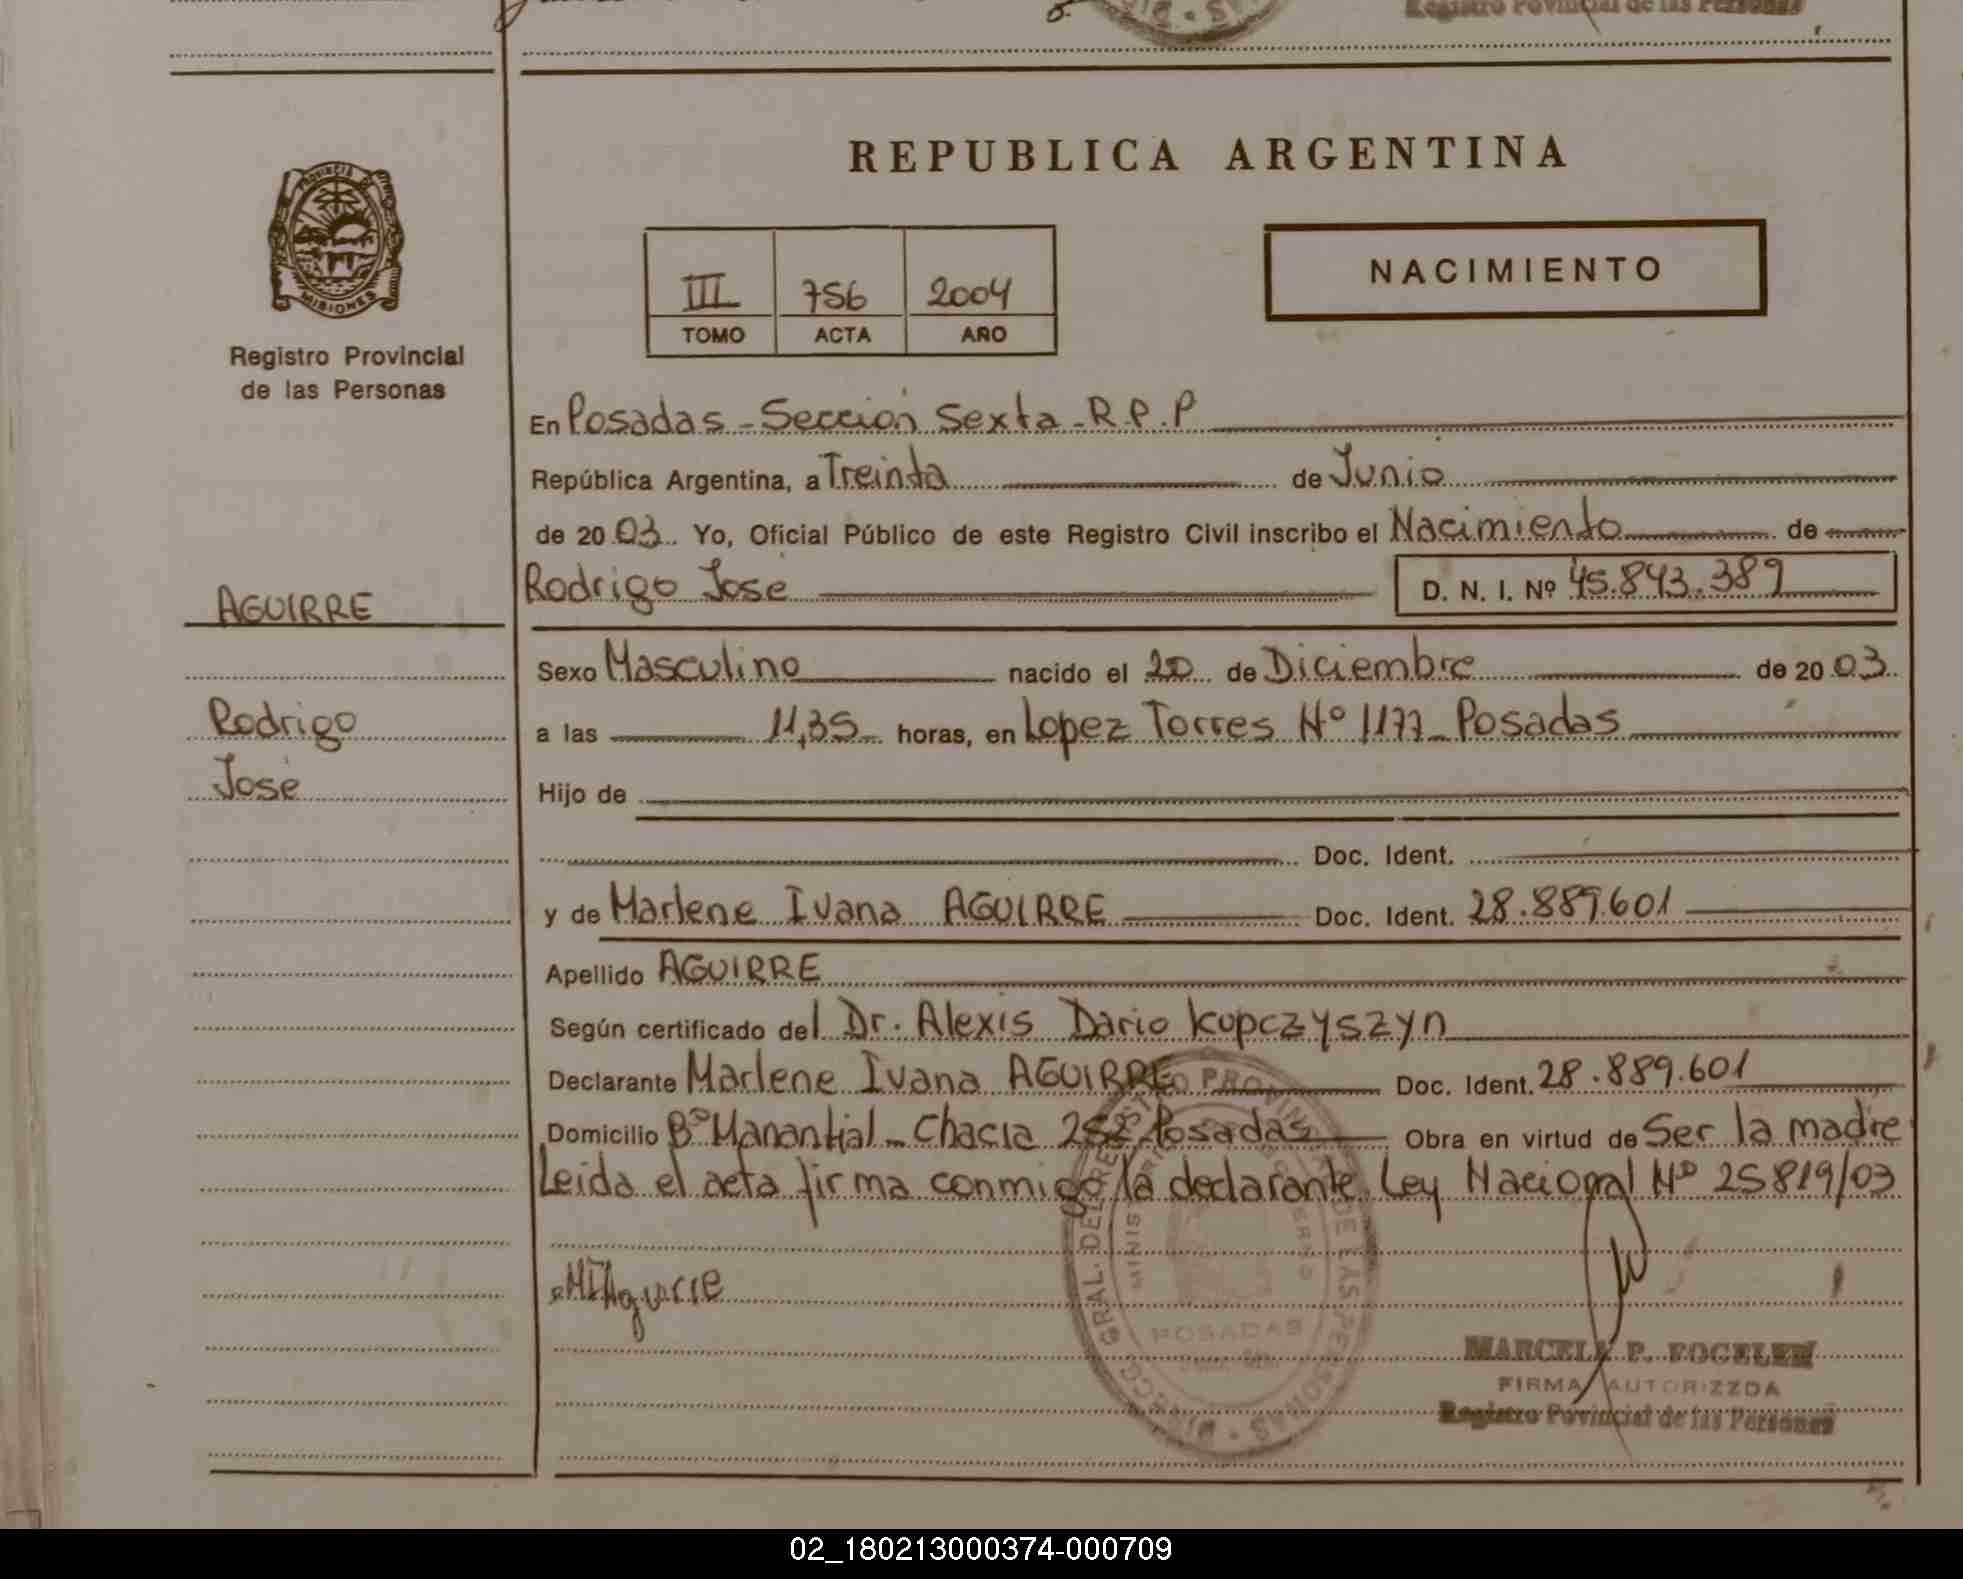 Registro Povincial de las Personas
REPUBLICA ARGENTINA
PROVINCIA DE
MISIONES
Registro Provincial
de las Personas
III 756 2004
TOMO ACTA AÑO
NACIMIENTO
En Posadas - Sección Sexta - R.P.P
República Argentina, a Treinta de Junio
de 2003. Yo, Oficial Público de este Registro Civil inscribo el Nacimiento de
Rodrigo José D. N. I. Nº 45.843.389
AGUIRRE
Sexo Masculino nacido el 20 de Diciembre de 2003
Rodrigo
a las 11,35 horas, en Lopez Torres Nº 1177 - Posadas
José
Hijo de
Doc. Ident.
y de Marlene Ivana AGUIRRE Doc. Ident. 28.889.601
Apellido AGUIRRE
Según certificado del Dr. Alexis Dario Kupczyszyn
Declarante Marlene Ivana AGUIRRE Doc. Ident. 28.889.601
Domicilio Bº Manantial - Chacra 252 Posadas Obra en virtud de Ser la madre
Leida el acta firma conmigo la declarante. Ley Nacional Nº 25819/03
MIAguirre
DIRECC. GRAL. DEL REGISTRO PROVINCIAL DE LAS PERSONAS
POSADAS
MARCELA P. FOGELER
FIRMA AUTORIZZDA
Registro Povincial de las Personas
02_180213000374-000709